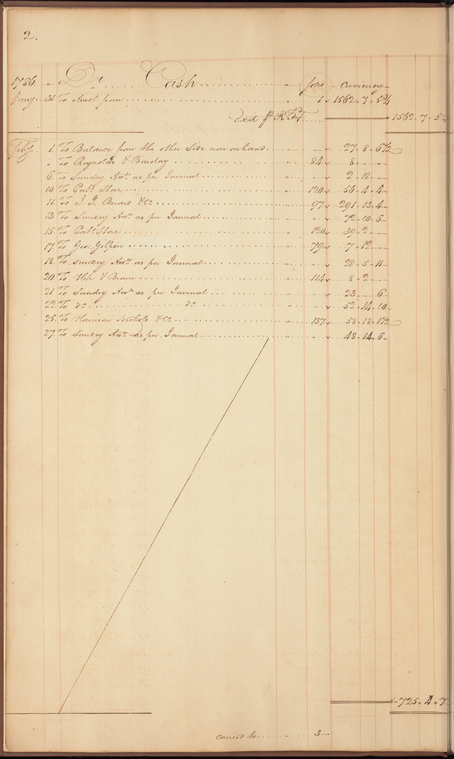 2.
1786 Dr Cash folio Currency
Jany. 31 To Amot from 1 1562 " 7 " 5¾
1562 - 7 - 5¾
Feby 1. To Balance from the other Side now on hand 27 - 8 - 6½
" To Reynolds & Barclay 84 8
6 To Sundry Accts as per Journal 2 - 10
10 To Pat. Stac 120 56 - 4 - 4
11 To J. J. &Co 97 291 - 13 - 4
13 To Sundry Accts as per Journal 72 - 10 - 6
15 To Pat. Stac 120 39 - 2
17 To Geo. Gilpin 79 7 - 12
18. To Sundry Accts as per Journal 28 - 5 - 11
20 To & 114 8 - 2
21 To Sundry Accts as per Journal 23 - 6
22 To Do Do 52 - 14 - 10
25 To Harrison Nichols &Co 137
27 To Sundry Accts as per Journal 48 - 14 - 6
725 - 4 - 7
carried to 3